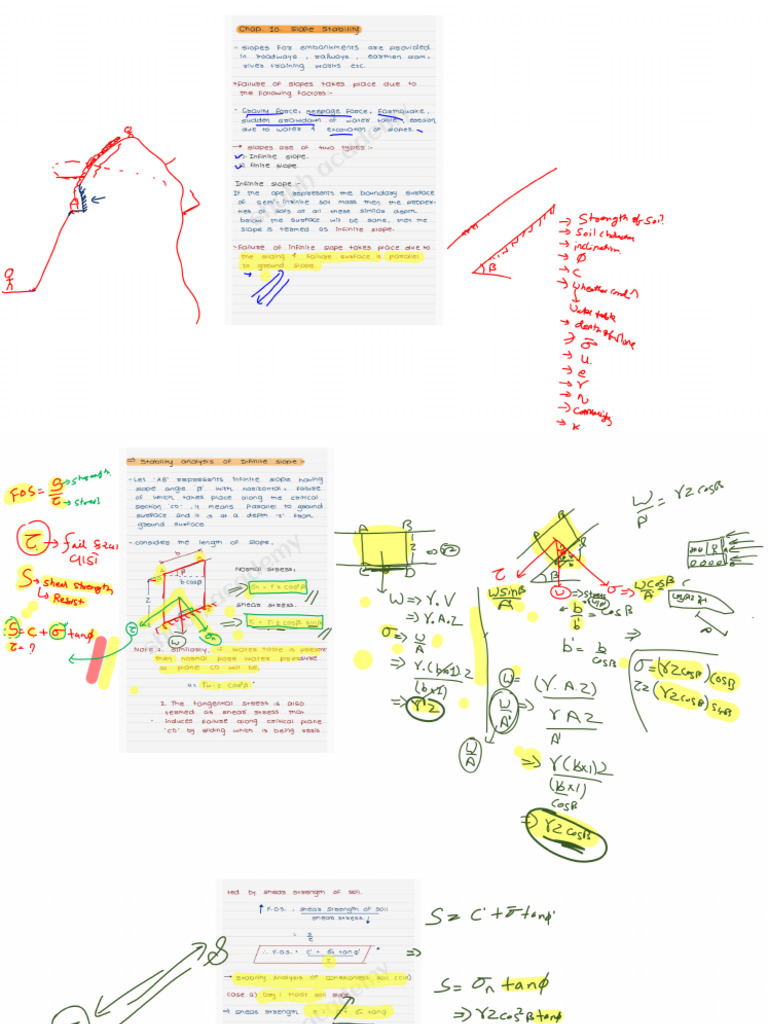 Chap. 10. Slope Stability
- Slopes for embankments are provided
in roadways, railways, earthen dam,
river training works etc.
* Failure of slopes takes place due to
the following factors:-
- Gravity force, seepage force, Earthquake,
sudden drawdown of water table, erosion
due to water & excavation of slopes.
→ Slopes are of two types:-
Infinite slope.
finite slope.
Infinite slope:-
represents the boundary surface
of semi infinite soil mass then the
of soils at all these similar depth
below the surface will be same, then the
slope is termed as infinite slope.
- Failure of infinite slope takes place due to
the sliding & failure surface is parallel
to ground slope.
β
→ Strength of soil?
→ inclination
→ ϕ
→ C
water table
→ σ̄
→ u.
→ e
→ γ
→ n
→ k
⇒ Stability analysis of Infinite slope:-
- Let 'AB' represents infinite slope having
slope angle β with horizontal, failure
of which takes place along the critical
section 'CD', it means parallel to ground
surface and it is at a depth 'z' from
ground surface.
- consider the length of slope.
FOS = S → strength
τ → stress
τ
S → shear strength
↳ Resist
S = C + σ tanϕ
τ = ?
b
β
b cosβ
z
W
τ
σn
Normal stress:
σn = γ z cos²β
shear stress:
τ = γ z cosβ sinβ
Note 1. Similarly, if water table is present
then normal pore water pressure
to plane CD will be,
u = γw · z cos²β
2. The tangential stress is also
termed as shear stress that
induces failure along critical plane
'CD' by sliding which is being resis
A B
C D
z
⇒ γz
W ⇒ γ.V
⇒ γ.A.z
σ ⇒ W
A
⇒ γ.(b×1)z
(b×1)
⇒ γz
W = γz cosβ
A'
τ
W sinβ
A'
W
σ ⇒ W cosβ
A'
b = cosβ
b'
b' = b
cosβ
W = (γ.A.z)
W
A'
γAz
A'
W
A
⇒ γ(b×1)z
(b×1)
cosβ
⇒ γz cosβ
σ = (γz cosβ) cosβ
τ = (γz cosβ) sinβ
ted by shear strength of soil.
↑ F.O.S. = shear strength of soil
shear stress ↓
= S
τ
∴ F.O.S. = C' + σ̄n tanϕ'
τ
⇒
→ Stability Analysis of cohesionless soil (C=0)
case a) Dry / moist soil slope
→ shear strength
S
S = C' + σ̄ tanϕ'
S = σn tanϕ
⇒ γz cos²β tanϕ